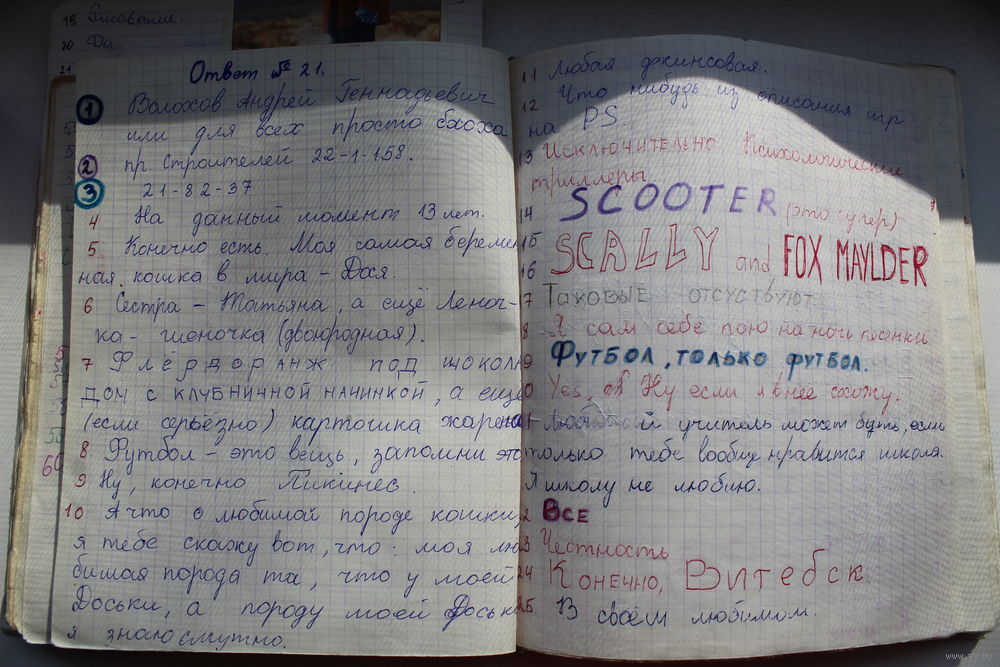 19 Рисование.
20 Да.
21
Ответ № 21.
1 Волохов Андрей Геннадьевич
или для всех просто блоха
2 пр. Строителей 22-1-158.
3 21-82-37
4 На данный момент 13 лет.
5. Конечно есть. Моя самая беремен
ная кошка в мира - Дося.
6 Сестра - Татьяна, а ещё Леноч-
ка - гионочка (двоюродная).
7 Флёрдоранж под шокола
дом с клубничной начинкой, а ещё
(если серьёзно) картошка жарена
8 Футбол - это вещь, запомни это
9 Ну, конечно Пикинес.
10 А что о любимой породе кошки,
я тебе скажу вот, что: моя лю
бимая порода та, что у моей
Доськи, а породу моей Доськ
я знаю смутно.
60
11 Любая джинсовая.
12 Что нибудь из описания игр
на PS.
13 Исключительно Психологические
триллеры
14 SCOOTER (это супер)
15 SCALLY and FOX MAYLDER
16
7 Таковые отсуствуют.
8 Я сам себе пою на ночь песенки
9 Футбол, только футбол.
0 Yes, Ну если я в неё схожу.
1 Любой учитель может быть, если
только тебе вообще нравится школа.
Я школу не люблю.
2 Все
3 Честность
24 Конечно, Витебск.
25. В своём любимом.